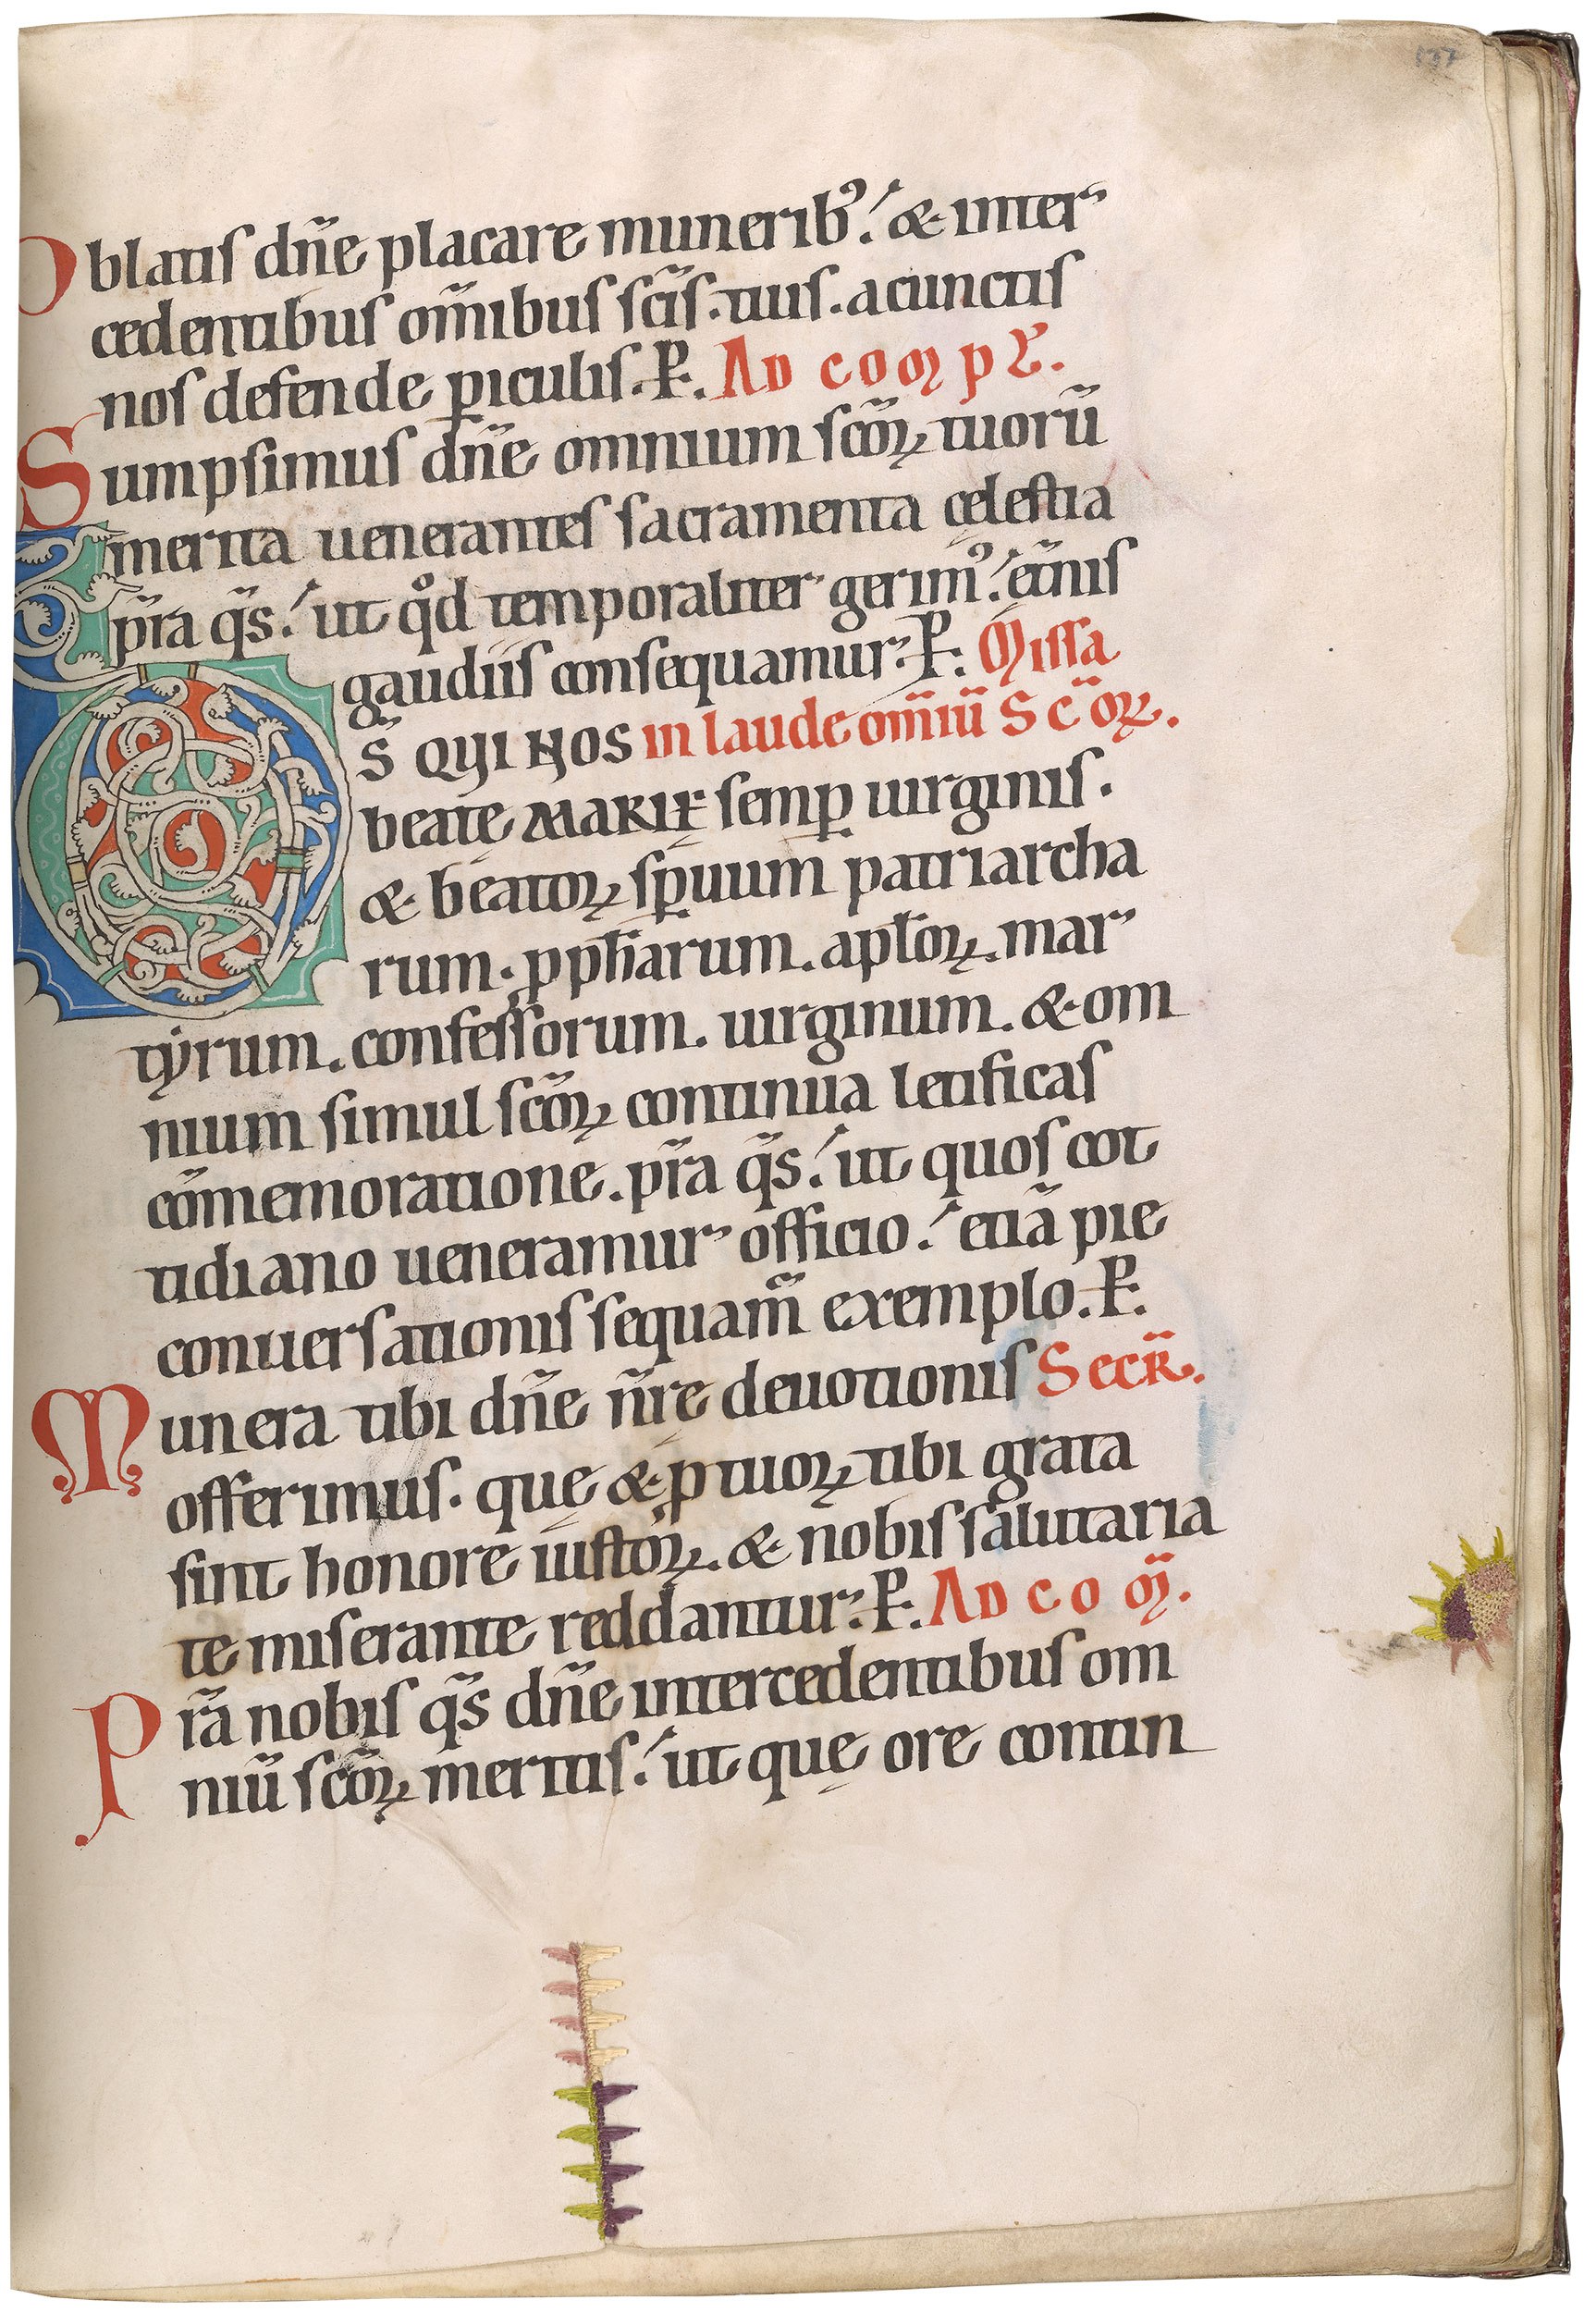 Oblatis dn̄e placare munerib⁹. & inter
cedentibus om̄ibus sc̄is. tuis. a cunctis
nos defende ꝑiculis. P. AD COMPL̄.
Sumpsimus dn̄e omnium sc̄oꝝ tuorū
merita uenerantes sacramenta cęlestia
p̄ra q̄s. ut qͦd temporaliter gerim⁹. et̄nis
gaudiis consequamur. P. Missa
DS̄ QUI NOS in laude om̄iū SC̄OꝜ.
beatę MARIĘ semꝑ uirginis.
& beatoꝝ sp̄uum patriarcha
rum. ꝓpħarum. apl̄oꝝ. mar
tẏrum. confessorum. uirginum. & om
nium simul sc̄oꝝ continua letificas
cōmemoratione. p̄ra q̄s. ut quos cot
tidiano ueneramur officio. etiā pie
conuersationis sequam̄ exemplo. P.
Munera tibi dn̄e n̄rę deuotionis SECR̄.
offerimus. quę & ꝓ tuoꝝ tibi grata
sint honore iustoꝝ. & nobis salutaria
te miserante reddantur. P. AD COM̄.
Pr̄a nobis q̄s dn̄e intercedentibus om
niū sc̄oꝝ meritis. ut quę ore contin